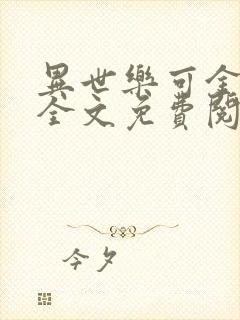 異世樂可全
全文免費閱
今夕